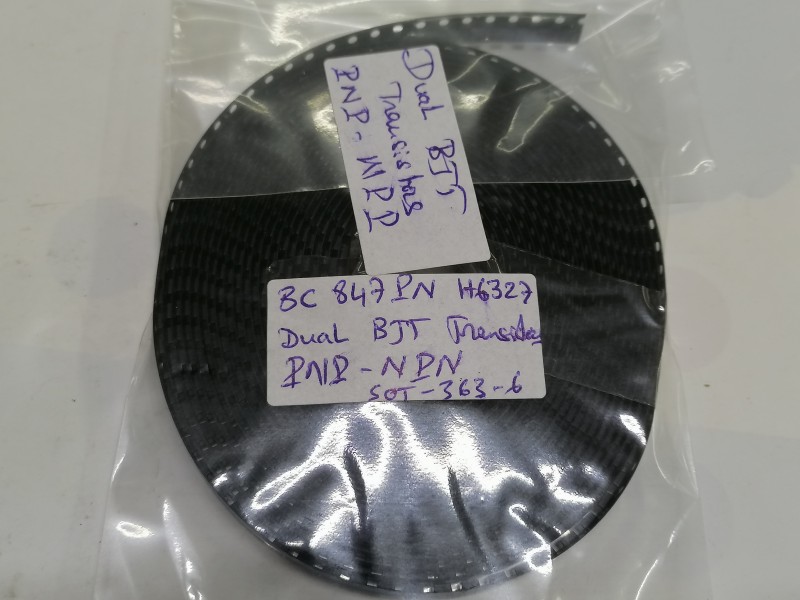 Dual BJT
Transistors
PNP - NPP
BC 847PN H6327
Dual BJT Transistors
PNP - NPN
SOT-363-6